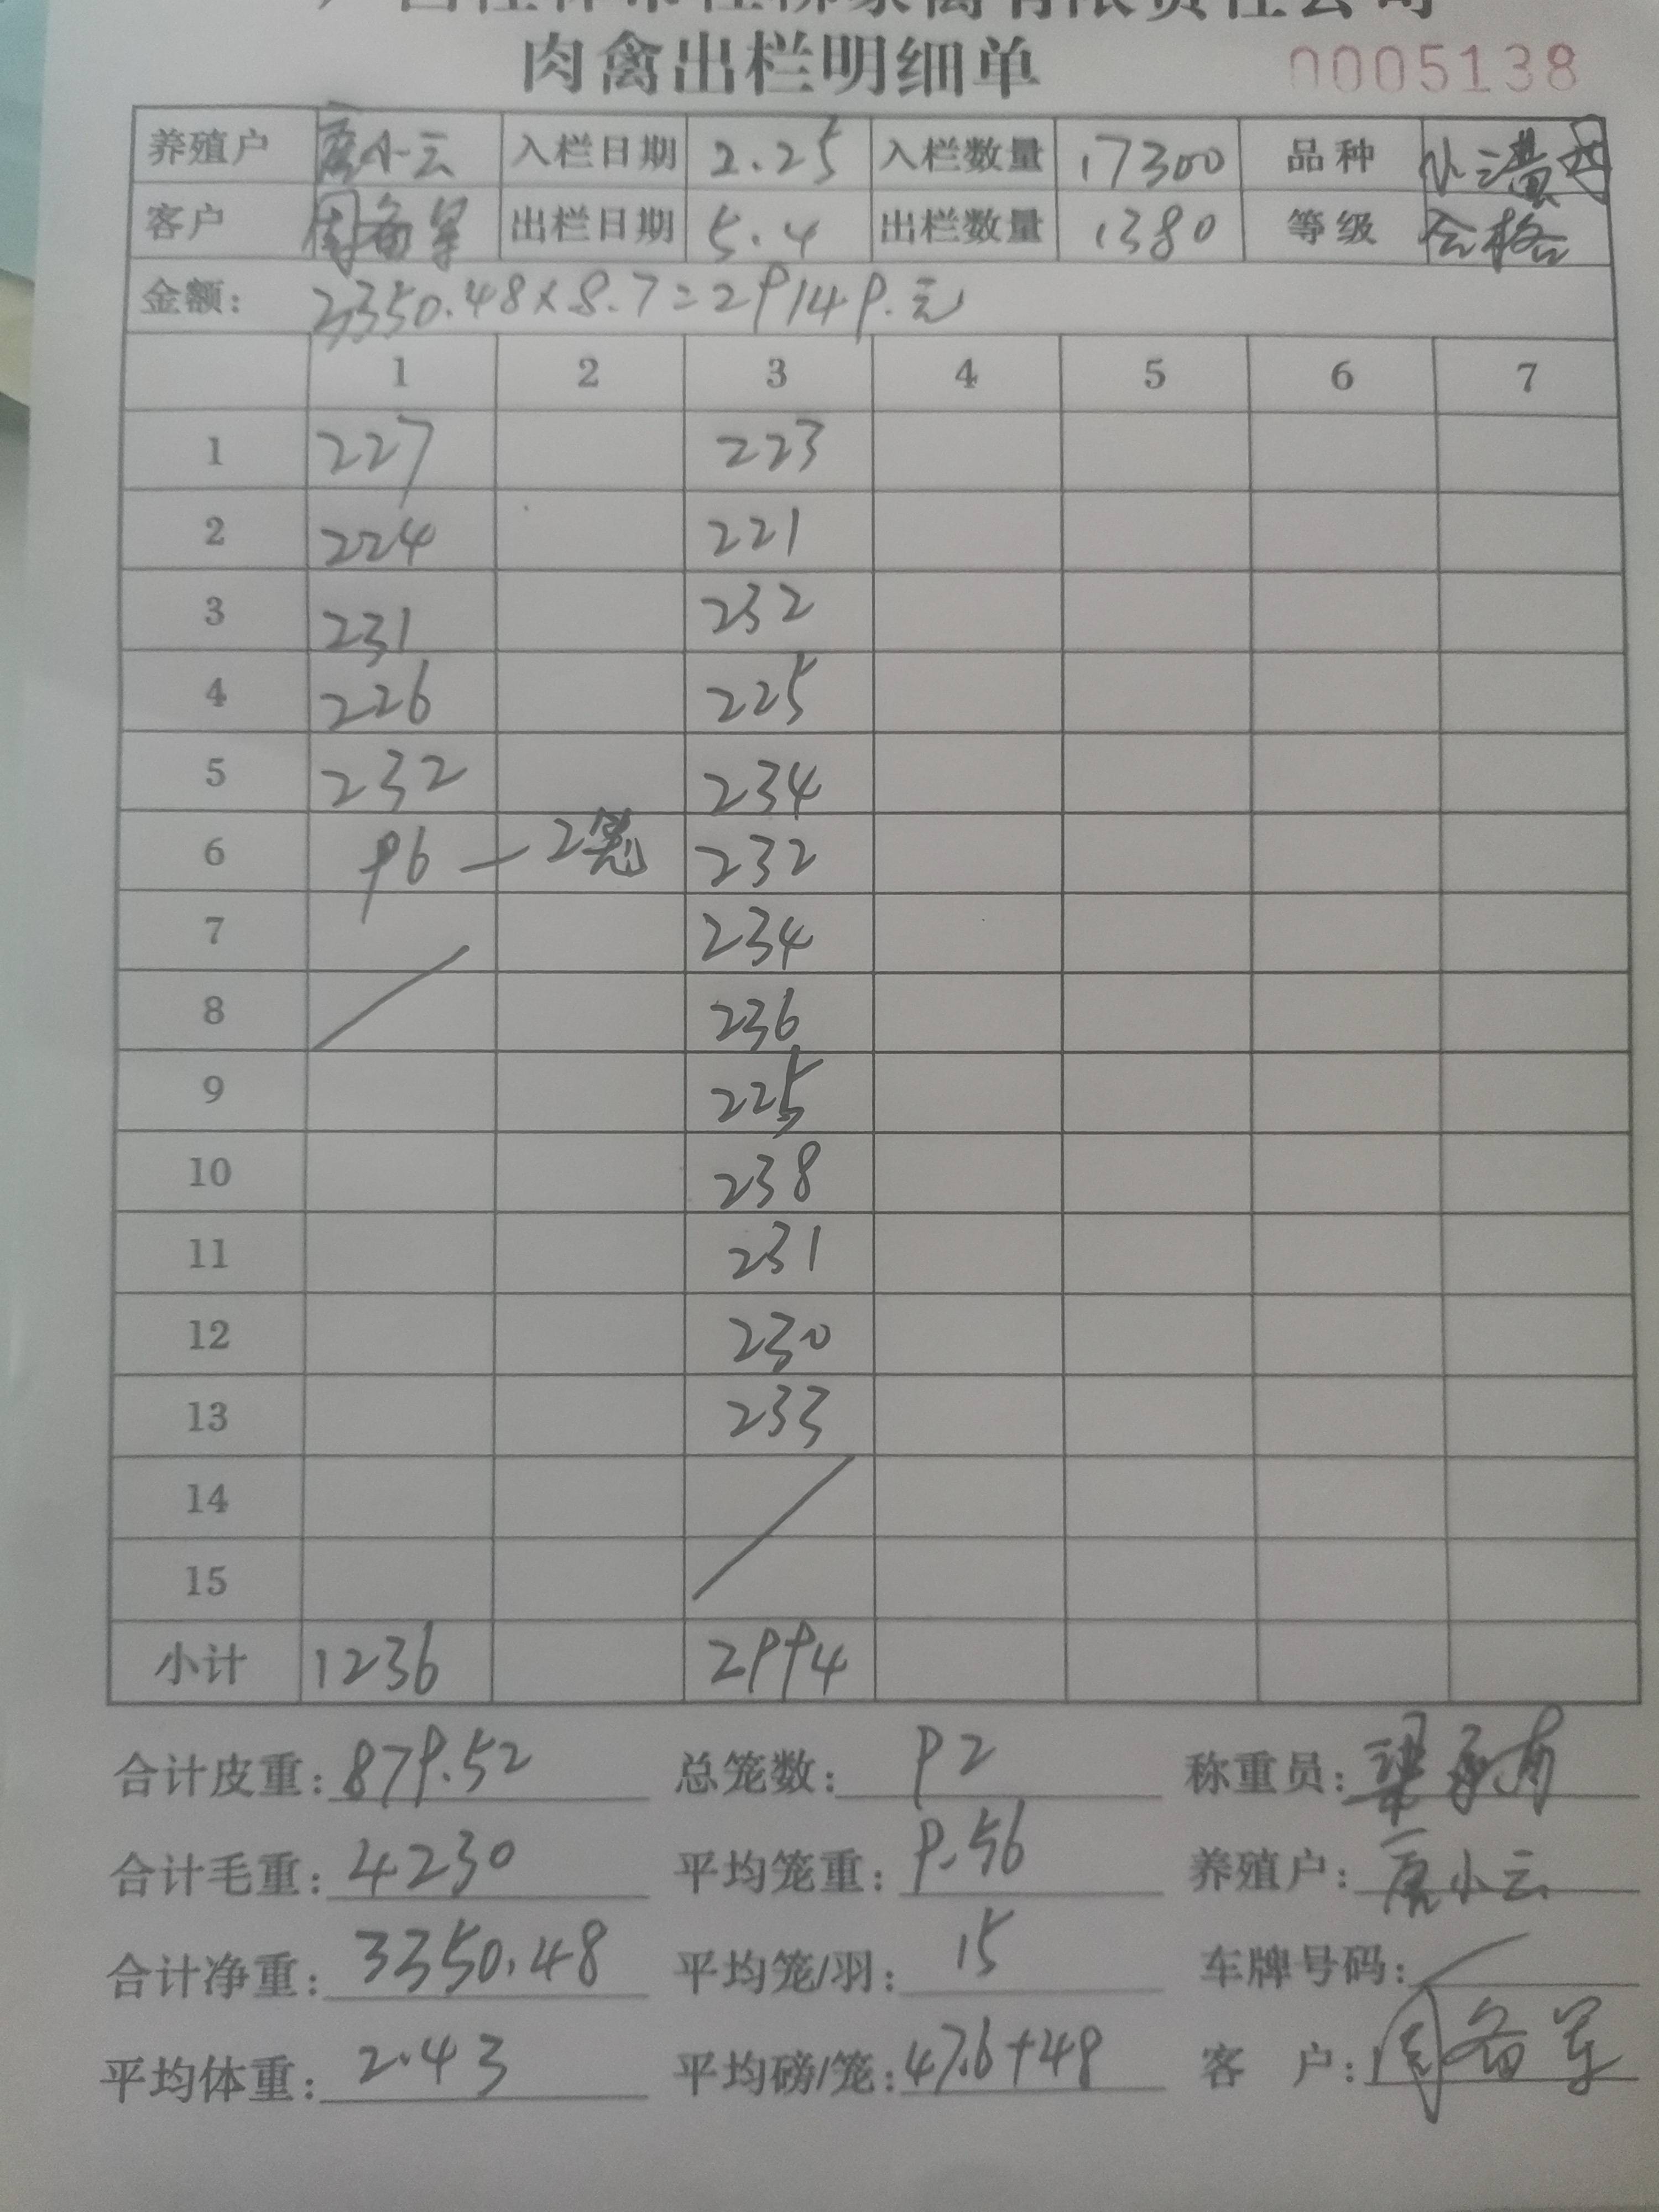 肉禽出栏明细单 0005138
养殖户 唐小云 入栏日期 2.25 入栏数量 17300 品种
客户 周备军 出栏日期 5.4 出栏数量 1380 等级 合格
金额: 3350.48×8.7=29149.元
1 2 3 4 5 6 7
1 227 223
2 224 221
3 231 232
4 226 225
5 232 234
6 96—2笼 232
7 234
8 236
9 225
10 238
11 231
12 230
13 233
14
15
小计 1236 2994
合计皮重: 879.52 总笼数: 92 称重员:
合计毛重: 4230 平均笼重: 9.56 养殖户: 唐小云
合计净重: 3350.48 平均笼/羽: 15 车牌号码:
平均体重: 2.43 平均磅/笼: 47.6+48 客 户: 周备军